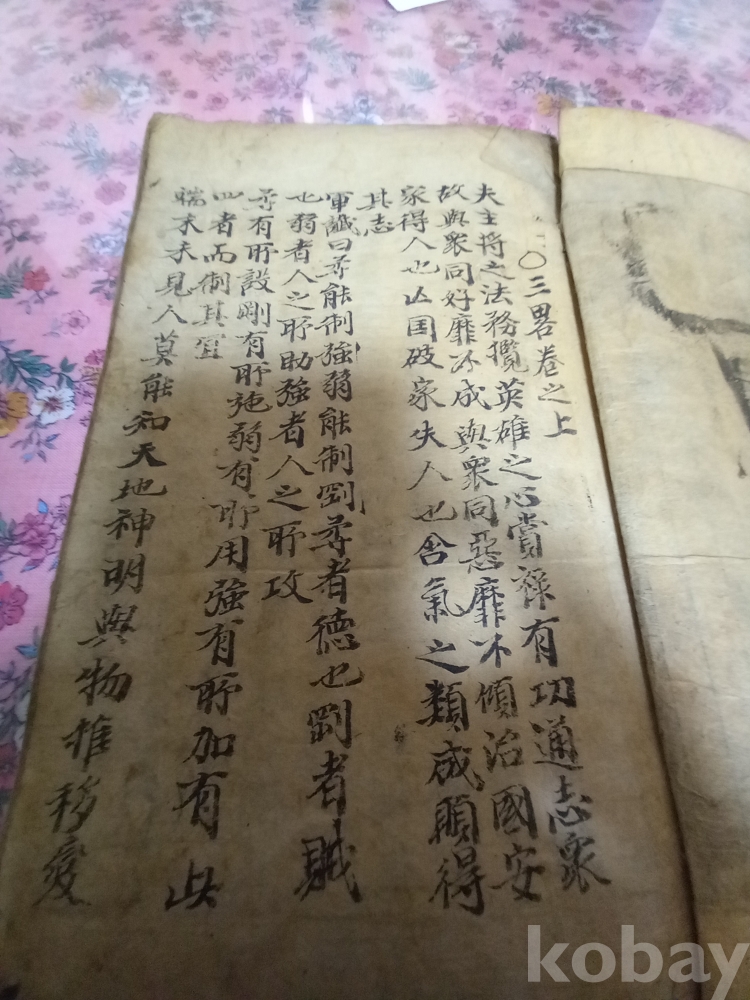 〇三畧卷之上
夫主將之法務攬英雄之心賞祿有功通志衆
故與衆同好靡不成與衆同惡靡不傾治國安
家得人也亾国破家失人也含氣之類咸願得
其志
軍讖曰柔能制強弱能制剛柔者德也剛者賊
也弱者人之所助強者人之所攻
柔有所設剛有所施弱有所用強有所加有此
四者而制其宜
端末未見人莫能知天地神明與物推移變
kobay